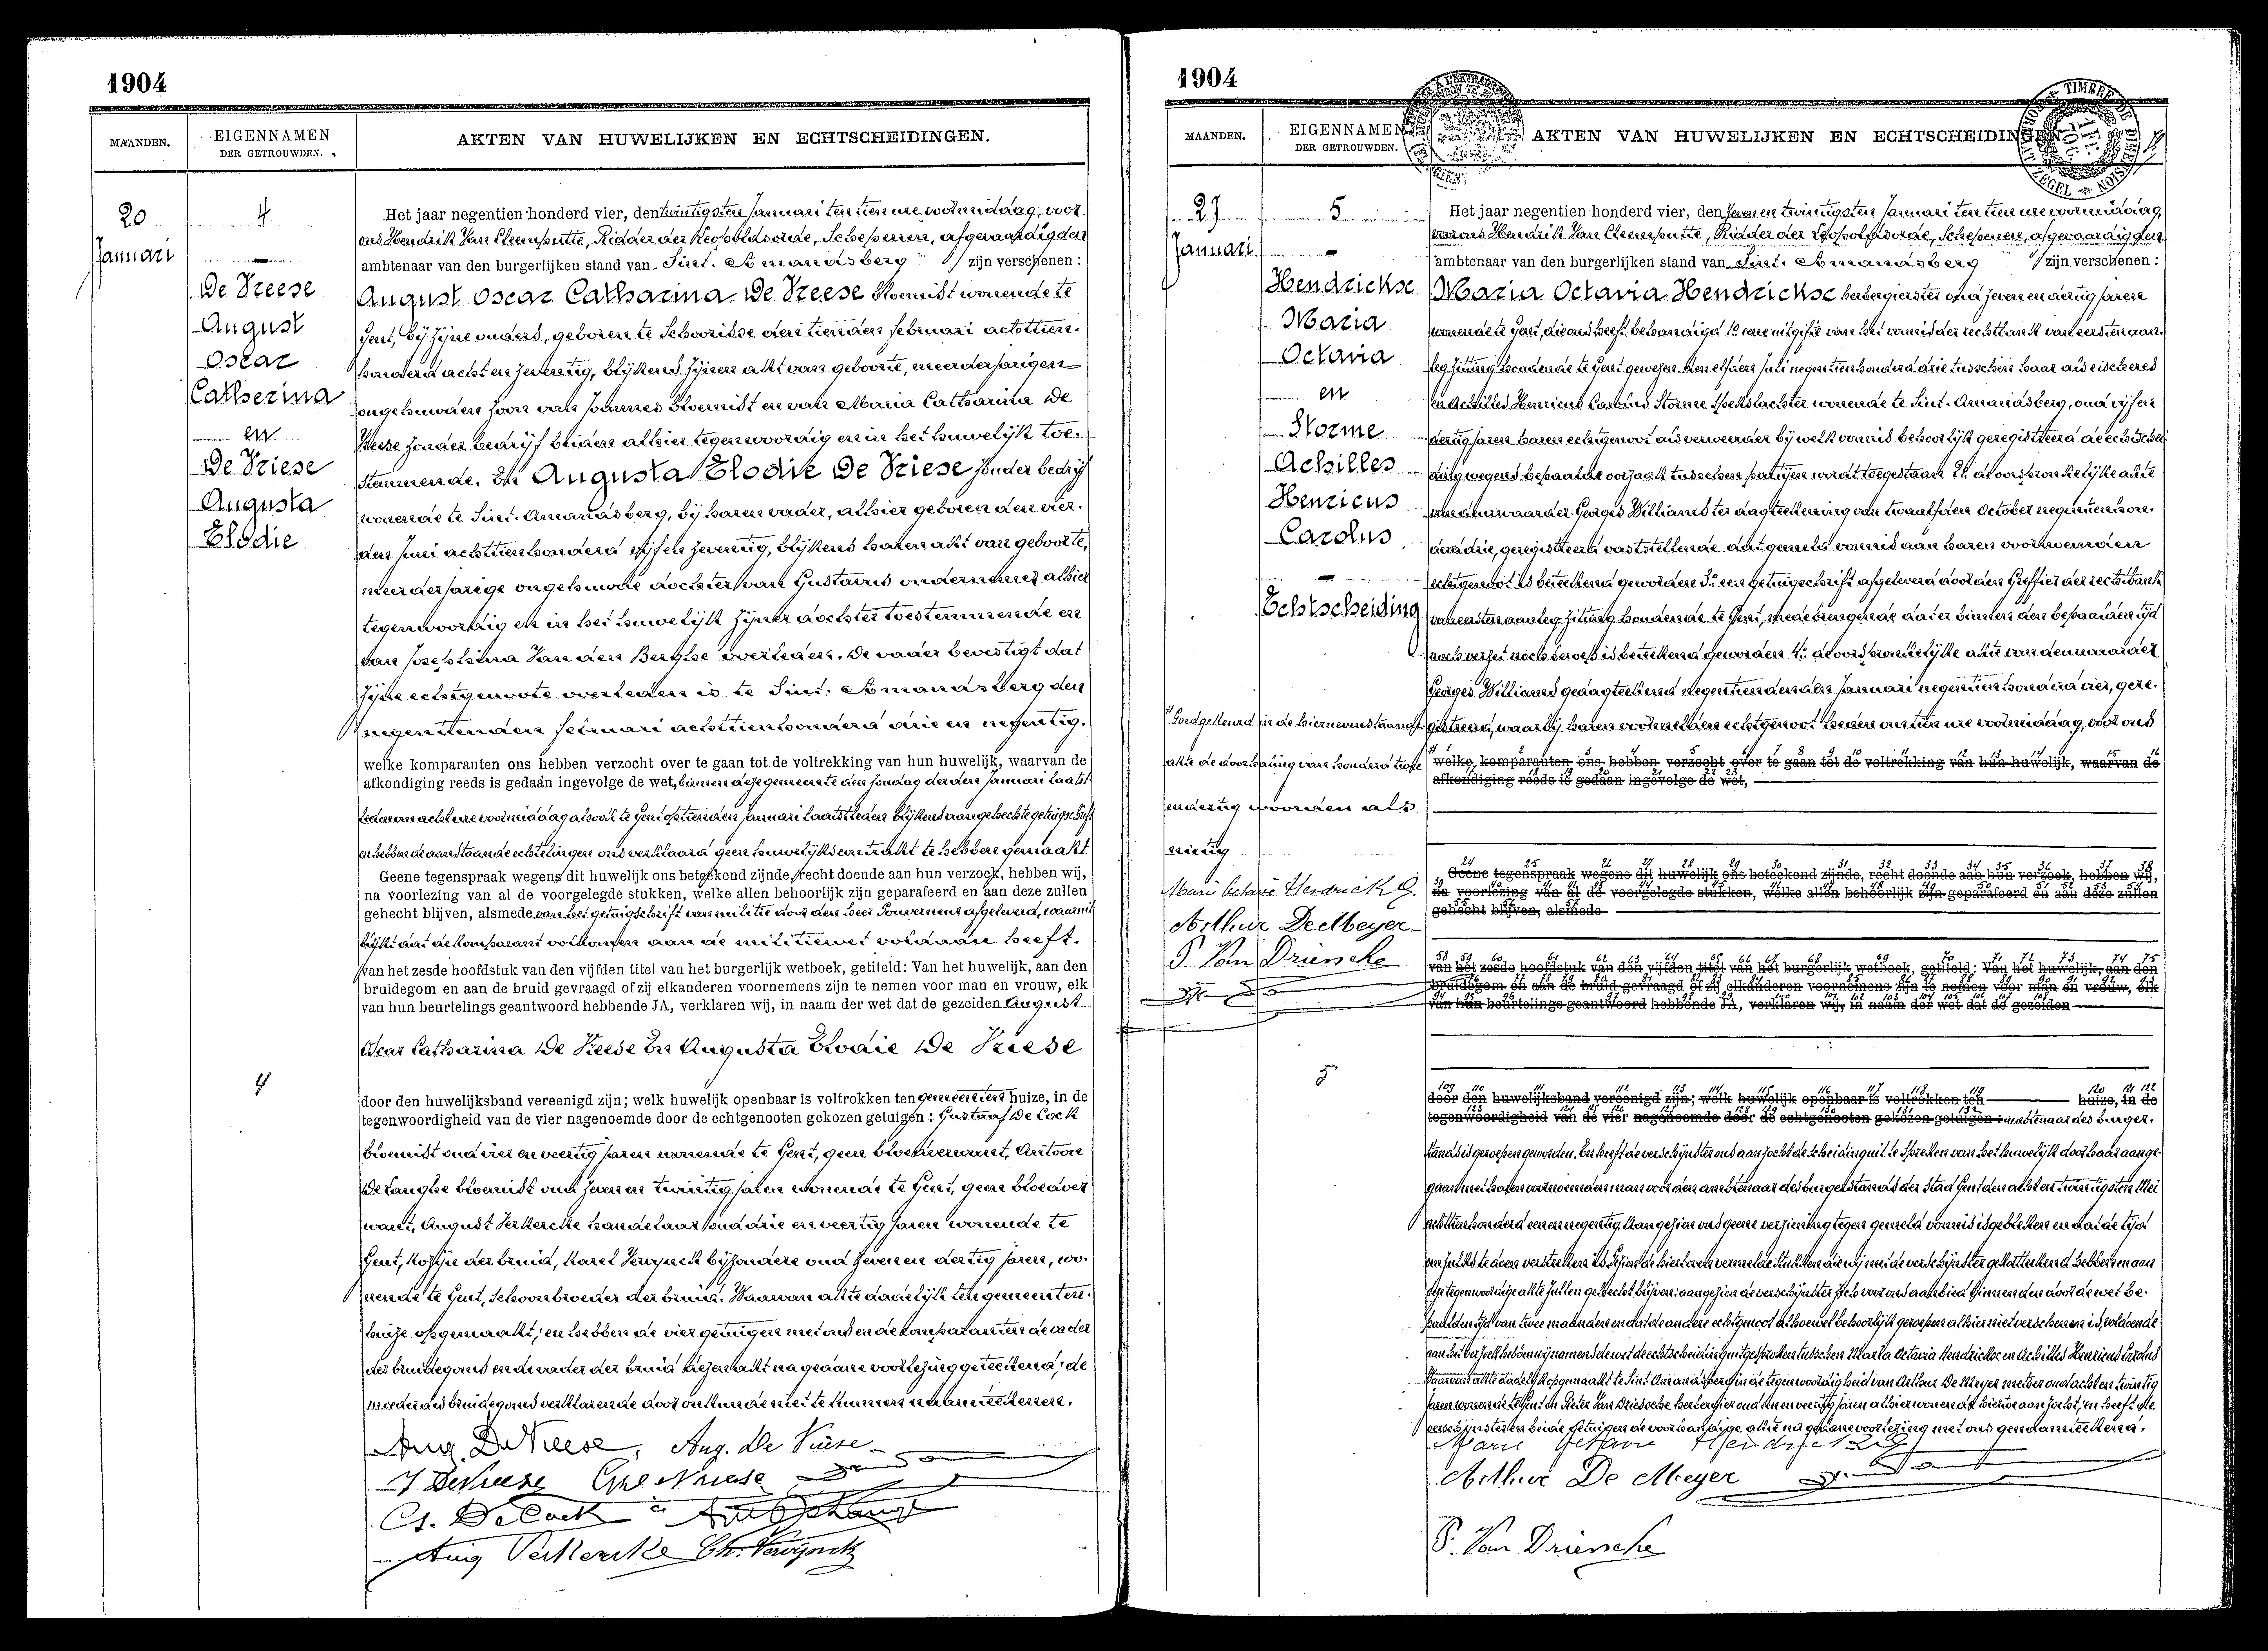 1904
MAANDEN.
EIGENNAMEN
DER GETROUWDEN.
AKTEN VAN HUWELIJKEN EN ECHTSCHEIDINGEN.
20
Januari
4
De Vreese
August
Oscar
Catherina
en
De Vriese
Augusta
Elodie
4
Het jaar negentien honderd vier, den twintigsten Januari ten tien ure voormiddag, voor
ons Hendrik Van Cleemputte, Ridder der Leopoldsorde, Schepenen, afgevaardigden
ambtenaar van den burgerlijken stand van Sint. Amandsberg zijn verschenen :
August Oscar Catharina De Vreese bloemist wonende te
Gent, bij zijne ouders, geboren te Schoorisse den tienden februari achttien-
honderd acht en zeventig, blijkens zijnen akt van geboorte, meerderjarigen
ongehuwden zoon van Joannes bloemist en van Maria Catharina De
Weese zonder bedrijf beiden alhier tegenwoordig en in het huwelijk toe-
stemmende. En Augusta Elodie De Vriese zonder bedrijf
wonende te Sint. Amandsberg, bij haren vader, alhier geboren den vier-
den Juni achttienhonderd vijf en zeventig, blijkens haren akt van geboorte,
meerderjarige ongehuwde dochter van Gustavus ondernemer alhier
tegenwoordig en in het huwelijk zijner dochter toestemmende en
van Josephina Van den Berghe overleden. De vader bevestigt dat
zijne echtgenoote overleden is te Sint. Amandsberg den
negentienden februari achttienhonderd drie en negentig.
welke komparanten ons hebben verzocht over te gaan tot de voltrekking van hun huwelijk, waarvan de
afkondiging reeds is gedaan ingevolge de wet, binnen deze gemeente den zondag derden Januari laatst
leden om acht ure voormiddag alsook te Gent op tienden Januari laatstleden blijkens aangehechte getuigschrift
en hebben de aanstaande echtelingen ons verklaard geen huwelijkscontrakt te hebben gemaakt.
Geene tegenspraak wegens dit huwelijk ons beteekend zijnde, recht doende aan hun verzoek, hebben wij,
na voorlezing van al de voorgelegde stukken, welke allen behoorlijk zijn geparafeerd en aan deze zullen
gehecht blijven, alsmede van het getuigschrift van militie door den heer Gouverneur afgeleverd, waaruit
blijkt dat de komparant voldoen aan de militiewet voldaan heeft.
van het zesde hoofdstuk van den vijfden titel van het burgerlijk wetboek, getiteld: Van het huwelijk, aan den
bruidegom en aan de bruid gevraagd of zij elkanderen voornemens zijn te nemen voor man en vrouw, elk
van hun beurtelings geantwoord hebbende JA, verklaren wij, in naam der wet dat de gezeiden August
Oscar Catharina De Vreese En Augusta Elodie De Vriese
door den huwelijksband vereenigd zijn; welk huwelijk openbaar is voltrokken ten gemeenten huize, in de
tegenwoordigheid van de vier nagenoemde door de echtgenooten gekozen getuigen : Gustaaf De Cock
bloemist oud vier en veertig jaren wonende te Gent, geen bloedverwant, Antoon
De Langhe bloemist oud zeven en twintig jaren wonende te Gent, geen bloedver
want, August Verkercke handelaar oud drie en veertig jaren wonende te
Gent, kozijn der bruid, Karel Verwynck bijzondere oud zeven en dertig jaren, wo-
nende te Gent, schoonbroeder der bruid. Waarvan akte dadelijk ten gemeenten-
huize opgemaakt; en hebben de vier getuigen met ons en de komparanten de vader
des bruidegoms en de vader der bruid dezen akt na gedane voorlezing geteekend; de
moeder des bruidegoms verklarende door onkunde niet te kunnen naamteekenen.
Aug. De Vreese, Aug. De Vriese
J DeVreese Gve De Vriese
G. De Cock
Aug Verkercke Ch. Verwynck
1904
MAANDEN.
EIGENNAMEN
DER GETROUWDEN.
AKTEN VAN HUWELIJKEN EN ECHTSCHEIDINGEN
TIMBRE DE DIMENSION
ZEGEL
27
Januari
5
Hendrickse
Maria
Octavia
en
Storme
Achilles
Henricus
Carolus
Echtscheiding
Goedgekeurd in de hiernevenstaande
akte de doorhaling van honderd twee
en dertig woorden als
nietig
Marie Octavie Hendrick
Arthur De Meyer
P. Van Driessche
5
Het jaar negentien honderd vier, den zeven en twintigsten Januari ten tien ure voormiddag,
voor ons Hendrik Van Cleemputte, Ridder der Leopoldsorde, Schepenen, afgevaardigden
ambtenaar van den burgerlijken stand van Sint. Amandsberg zijn verschenen :
Maria Octavia Hendrickse herbergierster oud zeven en dertig jaren
wonende te Gent, die ons heeft behandigd 1º eene uitgifte van het vonnis der rechtbank van eersten aan-
leg zitting houdende te Gent gewezen den elfden Juli negentienhonderd drie tusschen haar als eischeres
en Achilles Henricus Carolus Storme spekslachter wonende te Sint. Amandsberg, oud vijf en
dertig jaren haren echtgenoot als verweerder bij welk vonnis behoorlijk geregistreerd de echtschei
ding wegens bepaalde oorzaak tusschen partijen wordt toegestaan 2º de oorspronkelijke akte
van deurwaarder Georges Williams ter dagteekening van twaalfden October negentienhon-
derd drie, geregistreerd vaststellende dat gemeld vonnis aan haren voornoemden
echtgenoot is beteekend geworden 3º een getuigschrift afgeleverd door den Greffier der rechtbank
van eersten aanleg zitting houdende te Gent, medebrengende dat er binnen den bepaalden tijd
noch verzet noch beroep is beteekend geworden 4º de oorspronkelijke akte van deurwaarder
Georges Williams gedagteekend negentienden Januari negentienhonderd vier, gere-
gistreerd, waarbij haren voormelden echtgenoot heden om tien ure voormiddag, voor ons
welke komparanten ons hebben verzocht over te gaan tot de voltrekking van hun huwelijk, waarvan de
afkondiging reeds is gedaan ingevolge de wet,
Geene tegenspraak wegens dit huwelijk ons beteekend zijnde, recht doende aan hun verzoek, hebben wij,
na voorlezing van al de voorgelegde stukken, welke allen behoorlijk zijn geparafeerd en aan deze zullen
gehecht blijven, alsmede
van het zesde hoofdstuk van den vijfden titel van het burgerlijk wetboek, getiteld: Van het huwelijk, aan den
bruidegom en aan de bruid gevraagd of zij elkanderen voornemens zijn te nemen voor man en vrouw, elk
van hun beurtelings geantwoord hebbende JA, verklaren wij, in naam der wet dat de gezeiden
door den huwelijksband vereenigd zijn; welk huwelijk openbaar is voltrokken ten huize, in de
tegenwoordigheid van de vier nagenoemde door de echtgenooten gekozen getuigen : ambtenaar des burger-
stands is geroepen geworden. En heeft de verschijnster ons aanzocht de scheiding uit te spreken van het huwelijk door haar aange-
gaan met haren voornoemden man voor den ambtenaar des burgerstands der Stad Gent den acht en twintigsten Mei
achttienhonderd een en negentig. Aangezien ons geene verzetting tegen gemeld vonnis is gebleken en dat de tijd
om zulks te doen verstreken is. Gezien de hierboven vermelde stukken die wij met de verschijnster gekotteekend hebben en aan
den tegenwoordige akte zullen gehecht blijven: aangezien de verschijnster zich voor ons aanbied binnen den door de wet be-
paalden tijd van twee maanden en dat de andere echtgenoot alhoewel behoorlijk geroepen alhier niet verschenen is, voldoende
aan het verzoek hebben wij in naam der wet de echtscheiding uitgesproken tusschen Maria Octavia Hendrickse en Achilles Henricus Carolus
Waarvan akte dadelijk opgemaakt te Sint. Amandsberg in de tegenwoordigheid van Arthur De Meyer metser oud acht en twintig
jaren wonende te Gent en Pieter Van Driessche herbergier oud een en veertig jaren alhier wonende hiertoe aanzocht, en heeft de
verschijnster en beide getuigen de voorhandige akte na gedane voorlezing met ons genaamteekend.
Marie Octavie Hendrick
Arthur De Meyer
P. Van Driessche